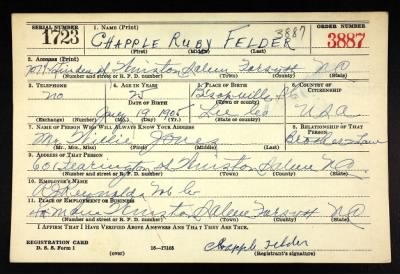 SERIAL NUMBER 1. NAME (Print) ORDER NUMBER
1723 CHAPPLE RUBY FELDER 3887 3887
(First) (Middle) (Last)
2. ADDRESS (Print)
Winston Salem Forsyth N.C.
(Number and street or R. F. D. number) (Town) (County) (State)
3. TELEPHONE 4. AGE IN YEARS 5. PLACE OF BIRTH 6. COUNTRY OF CITIZENSHIP
no Bishopville
DATE OF BIRTH (Town or county)
Lee Co U.S.A.
(Exchange) (Number) (Mo.) (Day) (Yr.) (State or country)
7. NAME OF PERSON WHO WILL ALWAYS KNOW YOUR ADDRESS 8. RELATIONSHIP OF THAT PERSON
Mr. Willie Jones
(Mr., Mrs., Miss) (First) (Middle) (Last)
9. ADDRESS OF THAT PERSON
601 St Winston Salem N.C.
(Number and street or R. F. D. number) (Town) (County) (State)
10. EMPLOYER'S NAME
Reynolds
11. PLACE OF EMPLOYMENT OR BUSINESS
Main Winston Salem Forsyth N.C.
(Number and street or R. F. D. number) (Town) (County) (State)
I AFFIRM THAT I HAVE VERIFIED ABOVE ANSWERS AND THAT THEY ARE TRUE.
REGISTRATION CARD
D. S. S. Form 1 (over) 16—17105 Chapple Felder
(Registrant's signature)